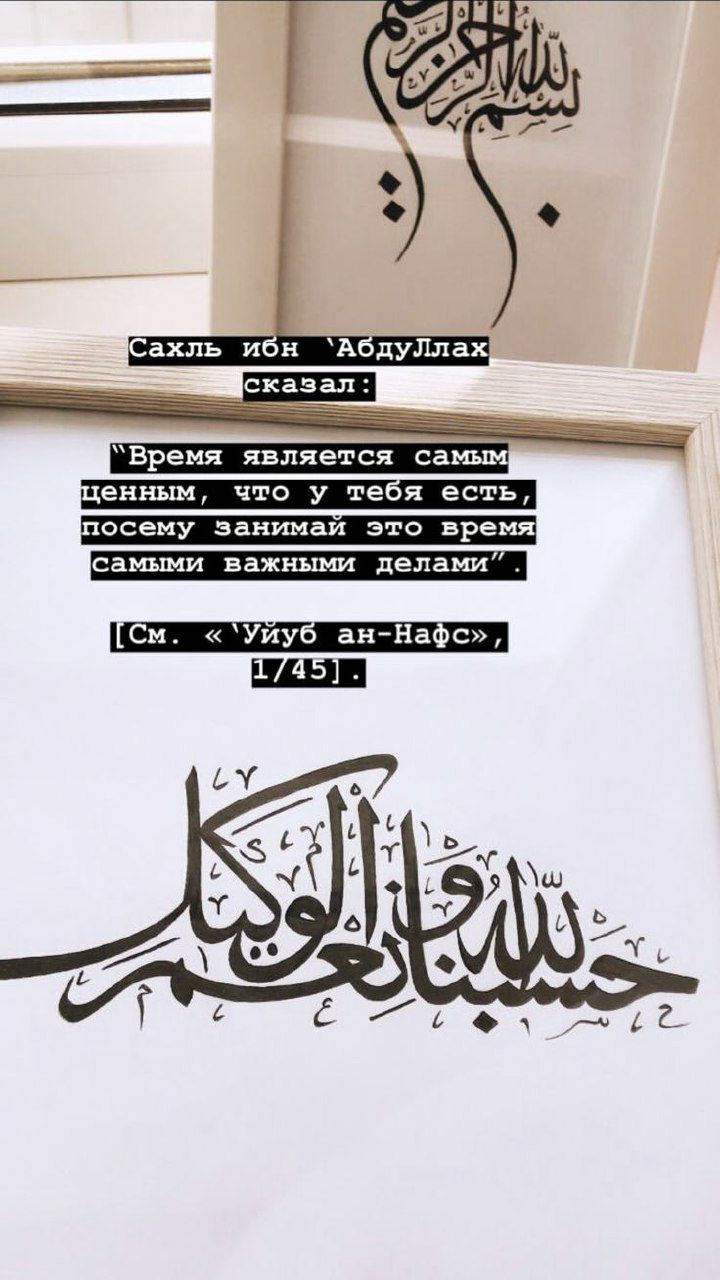 بسم الله الرحمن الرحيم
Сахль ибн ‛АбдуЛлах
сказал:
“Время является самым
ценным, что у тебя есть,
посему занимай это время
самыми важными делами”.
[См. «‛Уйуб ан-Нафс»,
1/45].
حسبنا الله ونعم الوكيل